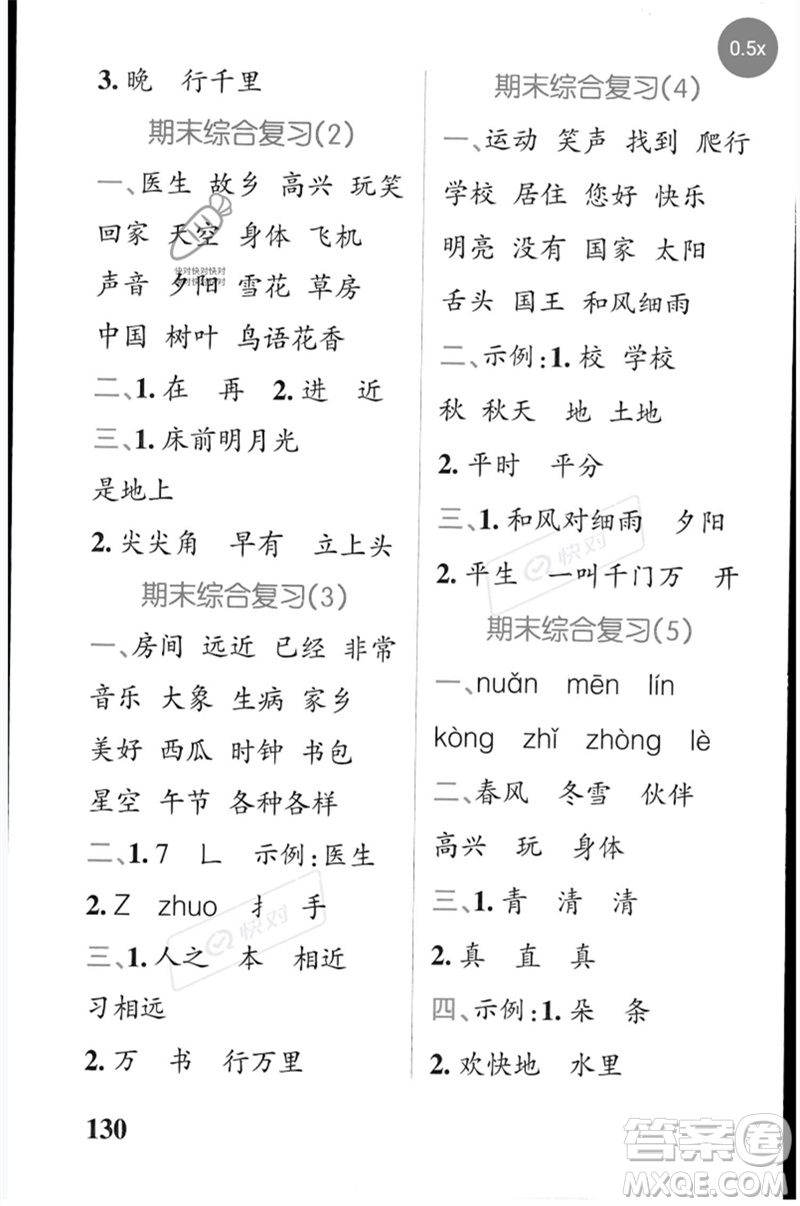 3. 晚 行千里
期末综合复习(2)
一、医生 故乡 高兴 玩笑
回家 天空 身体 飞机
声音 夕阳 雪花 草房
中国 树叶 鸟语花香
二、1. 在 再 2. 进 近
三、1. 床前明月光
是地上
2. 尖尖角 早有 立上头
期末综合复习(3)
一、房间 远近 已经 非常
音乐 大象 生病 家乡
美好 西瓜 时钟 书包
星空 午节 各种各样
二、1. 7 乚 示例:医生
2. Z zhuo 扌 手
三、1. 人之 本 相近
习相远
2. 万 书 行万里
130
0.5x
期末综合复习(4)
一、运动 笑声 找到 爬行
学校 居住 您好 快乐
明亮 没有 国家 太阳
舌头 国王 和风细雨
二、示例:1. 校 学校
秋 秋天 地 土地
2. 平时 平分
三、1. 和风对细雨 夕阳
2. 平生 一叫千门万 开
期末综合复习(5)
一、nuǎn mēn lín
kòng zhǐ zhòng lè
二、春风 冬雪 伙伴
高兴 玩 身体
三、1. 青 清 清
2. 真 直 真
四、示例:1. 朵 条
2. 欢快地 水里
快对快对快对
快对快对快对
快对
快对
答案圈
MXQE.COM